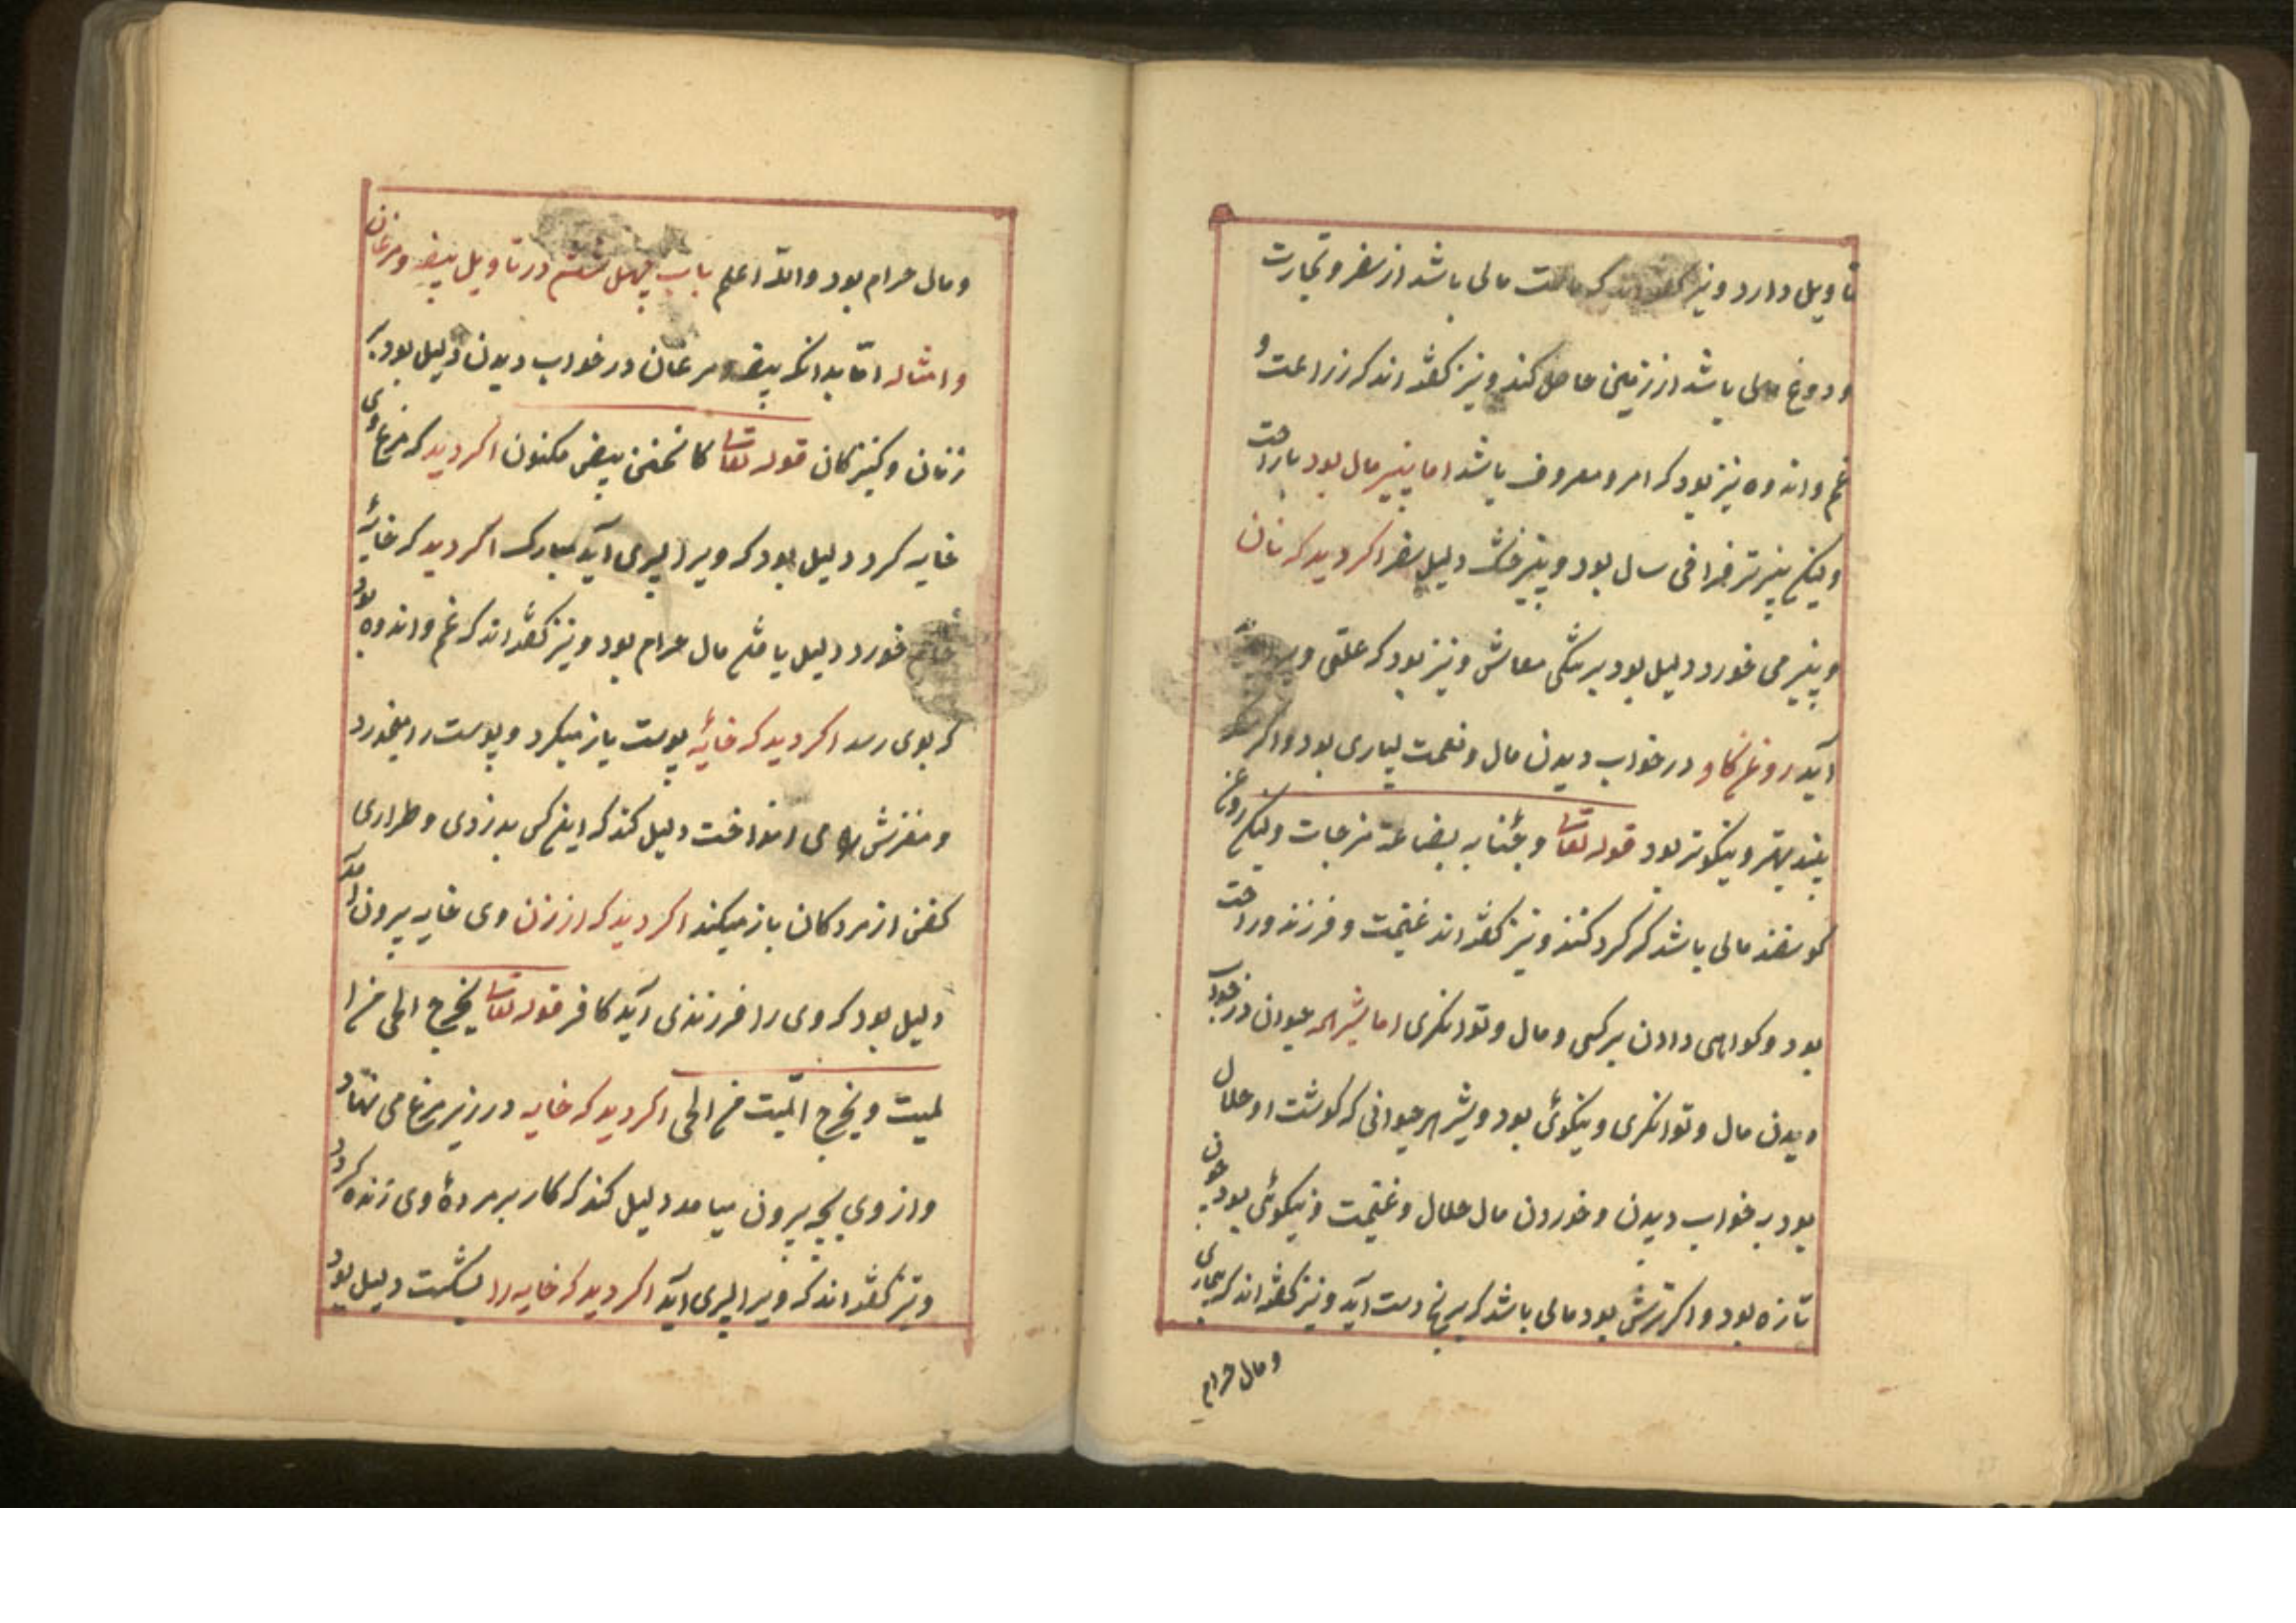 تاویل دارد و نیز گفته‌اند که ماست مالی باشد از سفر و تجارت
و دوغ مالی باشد از زمینی حاصل کند و نیز گفته‌اند که زراعت و
غم و اندوه نیز بود که امر و معروف باشد اما پنیر مال بود با راحت
ولیکن پنیر تر فراخی سال بود و پنیر خشک دلیل سفر اگر دید که نان
و پنیر می خورد دلیل بود بر تنگی معاش و نیز بود که علتی ویرا
آید روغن گاو در خواب دیدن مال و نعمت بسیاری بود و اگر
بیند بهتر و نیکوتر بود قوله تعالی و جئنا به بضاعة مزجات ولیکن روغن
گوسفند مالی باشد که گرد کنند و نیز گفته‌اند غنیمت و فرزند و راحت
بود و گواهی دادن بر کسی و مال و توانگری اما شیر همه حیوان در خواب
دیدن مال و توانگری و نیکوئی بود و شیر هر حیوانی که گوشت او حلال
بود به خواب دیدن و خوردن مال حلال و غنیمت و نیکوئی بود چون
تازه بود و اگر ترش بود مالی باشد که برنج دست آید و نیز گفته‌اند که بیماری
و مال حرام
و مال حرام بود والله اعلم باب چهل هشتم در تاویل بیضه مرغان
و امثاله امّا بدانکه بیضه مرغان در خواب دیدن دلیل بود بر
زنان و کنیزکان قوله تعالی کانهن بیض مکنون اگر دید که مرغ وی
خایه کرد دلیل بود که ویرا پسری آید مبارک اگر دید که خایهٔ
خام خورد دلیل یافتن مال حرام بود و نیز گفته‌اند که غم و اندوه بود
که بوی رسد اگر دید که خایهٔ پوست باز میکرد و پوست را میخورد
و مغزش را می انداخت دلیل کند که اینکس بدزدی و طراری
کفن از مردکان باز میکند اگر دید که از زن وی خایه بیرون آمد
دلیل بود که وی را فرزندی آید کافر قوله تعالی یخرج الحی من ا
لمیت و یخرج المیّت من الحی اگر دید که خایه در زیر مرغ می نهاد
و از وی بچه بیرون میامد دلیل کند که کار بر مردهٔ وی زنده گردد
و نیز گفته‌اند که ویرا پسری آید اگر دید که خایه را بشکست دلیل بود